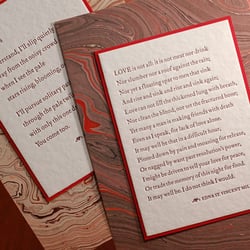 erstand, I'll slip quietly
away from the noisy crowd
when I see the pale
stars rising, blooming, o
I'll pursue solitary pa
with only this one d
You come too.
LOVE is not all: it is not meat nor drink
Nor slumber nor a roof against the rain;
Nor yet a floating spar to men that sink
And rise and sink and rise and sink again;
Love can not fill the thickened lung with breath,
Nor clean the blood, nor set the fractured bone;
Yet many a man is making friends with death
Even as I speak, for lack of love alone.
It well may be that in a difficult hour,
Pinned down by pain and moaning for release,
Or nagged by want past resolution's power,
I might be driven to sell your love for peace,
Or trade the memory of this night for food.
It may well be. I do not think I would.
EDNA ST. VINCENT